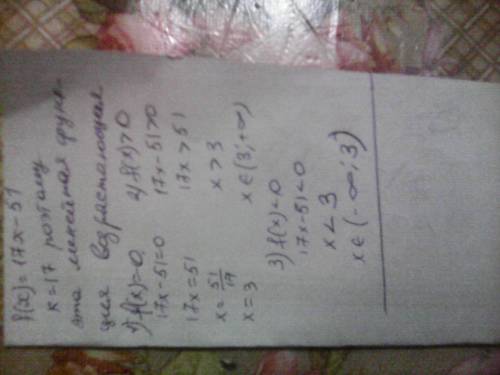 f(x)=17x-51
k=17 поэтому
эта линейная функ-
ция возрастающая
1) f(x)=0
17x-51=0
17x=51
x=51/17
x=3
2) f(x)>0
17x-51>0
17x>51
x>3
x∈(3;+∞)
3) f(x)<0
17x-51<0
x<3
x∈(-∞;3)